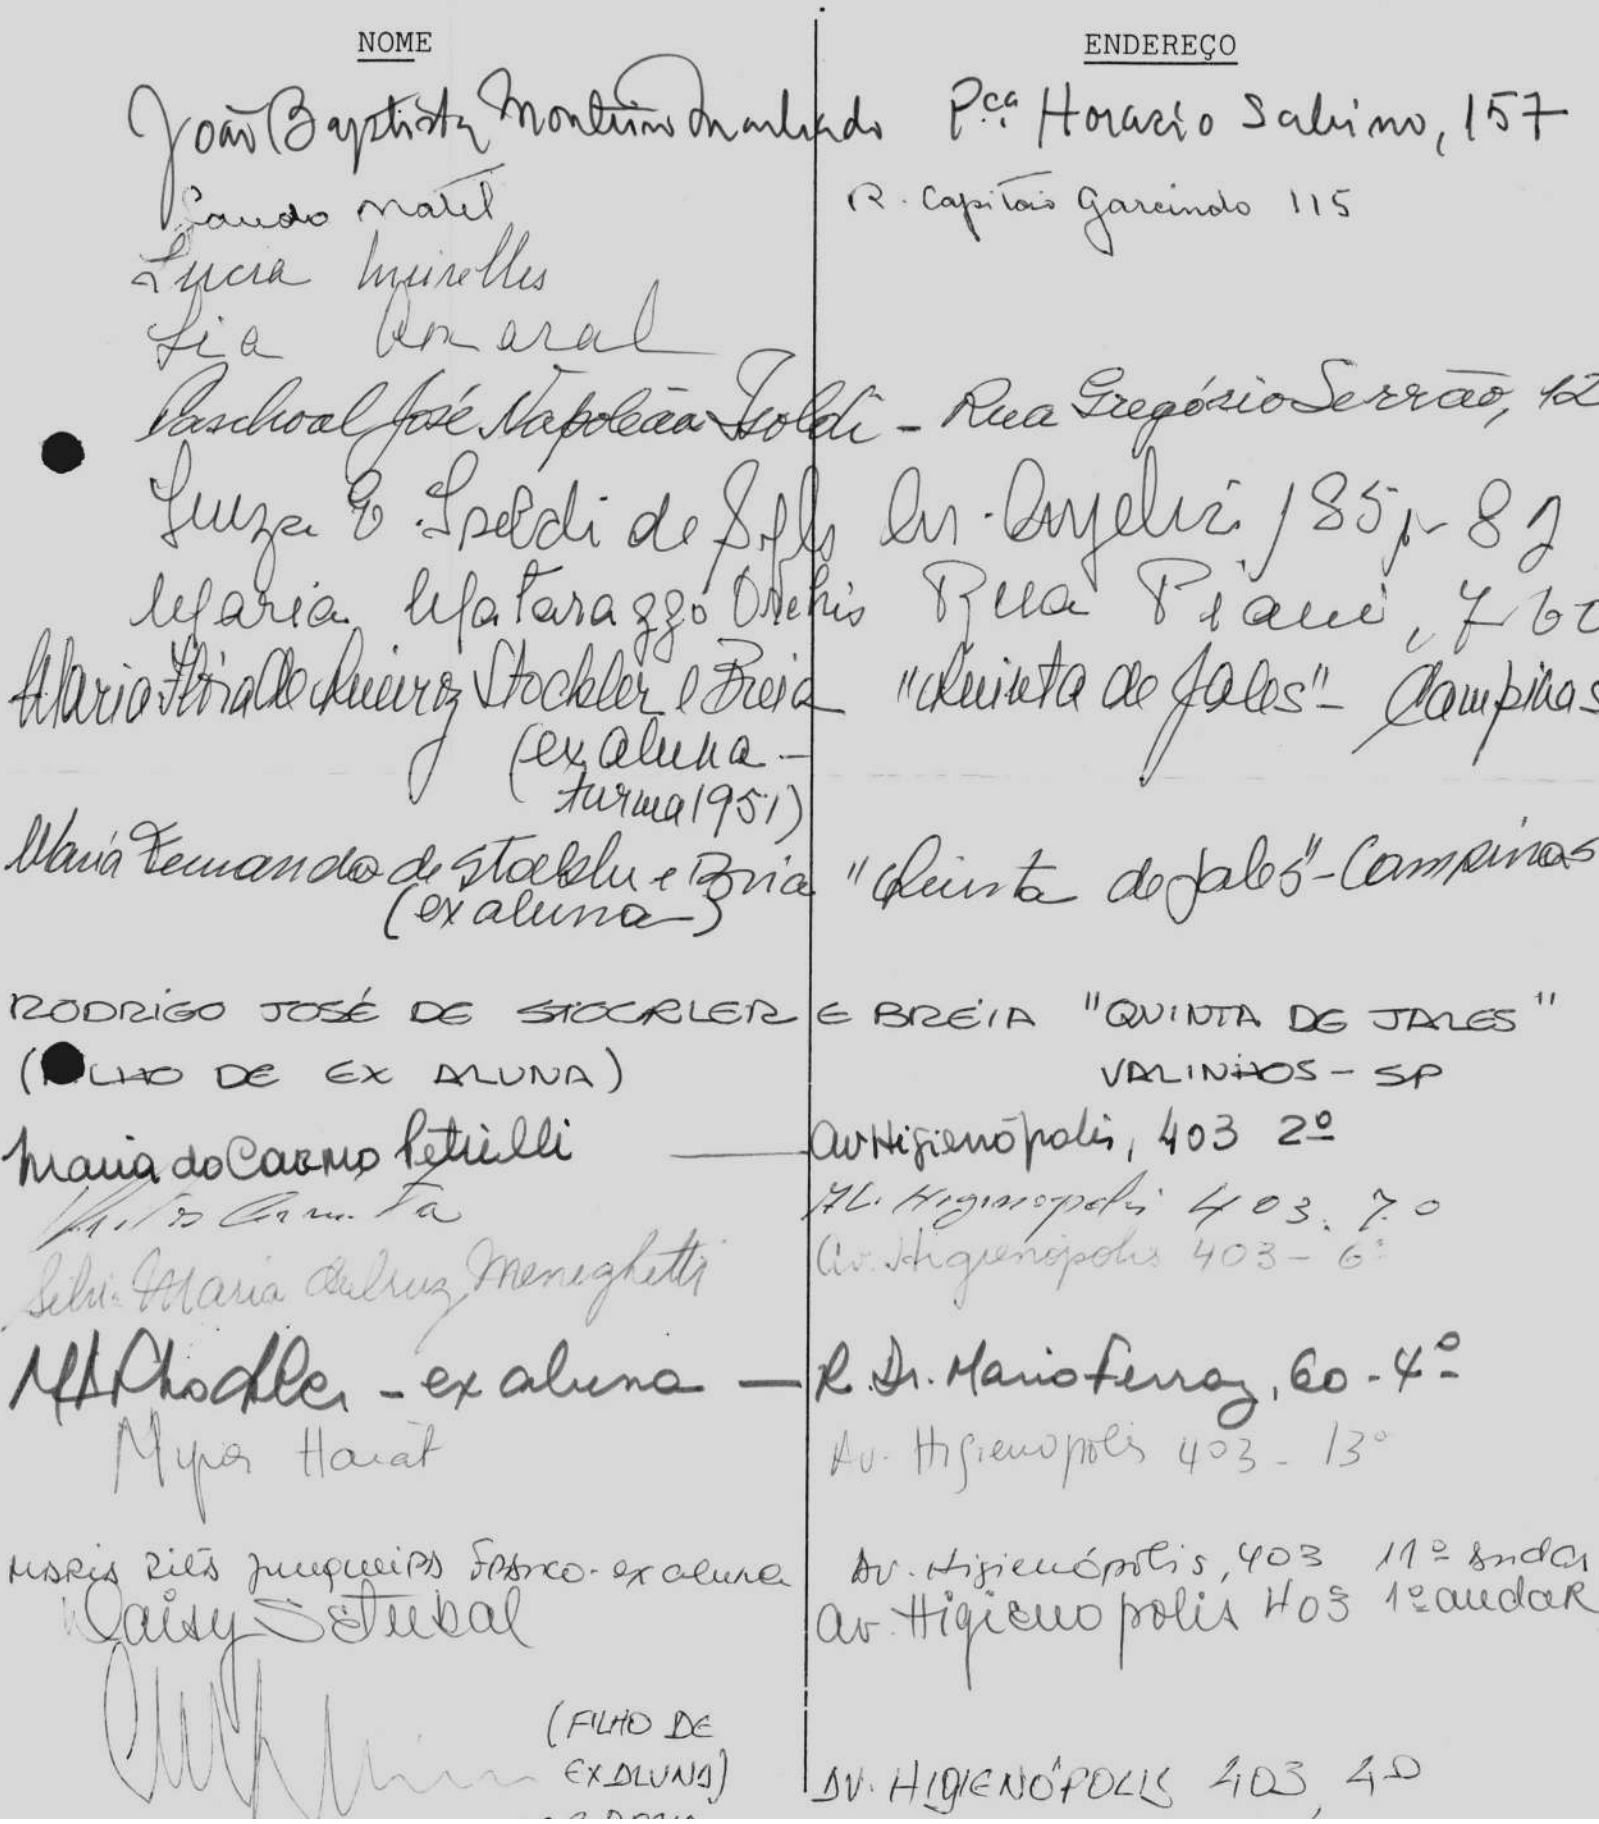 NOME ENDEREÇO
João Baptista Monteiro Machado Pça Horacio Sabino, 157
Laudo Natel R. Capitão Garcindo 115
Lucia Meirelles
Lia Amaral
Paschoal José Napoleão Isoldi - Rua Gregório Serrão, 12
Luiza E. Isoldi de Av. Angelica 185
Maria Matarazzo Rua Piaui, 760
Maria Flóra de Queiroz Stockler e Breia "Quinta de Jales" - Campinas
(ex aluna -
turma 1951)
Maria Fernanda de Stockler e Breia "Quinta de Jales" - Campinas
(ex aluna)
RODRIGO JOSÉ DE STOCKLER E BREIA "QUINTA DE JALES"
( DE EX ALUNA) VALINHOS - SP
Maria do Carmo Petrilli av Higienópolis, 403 2º
Higienopolis 403. 7º
Maria Meneghetti Av. Higienópolis 403 - 6º
- ex aluna - R. Dr. Mario Ferraz, 60 - 4º
Av. Higienopolis 403 - 13º
MARIA RITA Junqueira FRANCO - ex aluna Av. Higienópolis, 403 11º andar
Daisy Setubal av. Higienopolis 403 1º andar
(FILHO DE
EX ALUNA) AV. HIGIENÓPOLIS 403, 4º